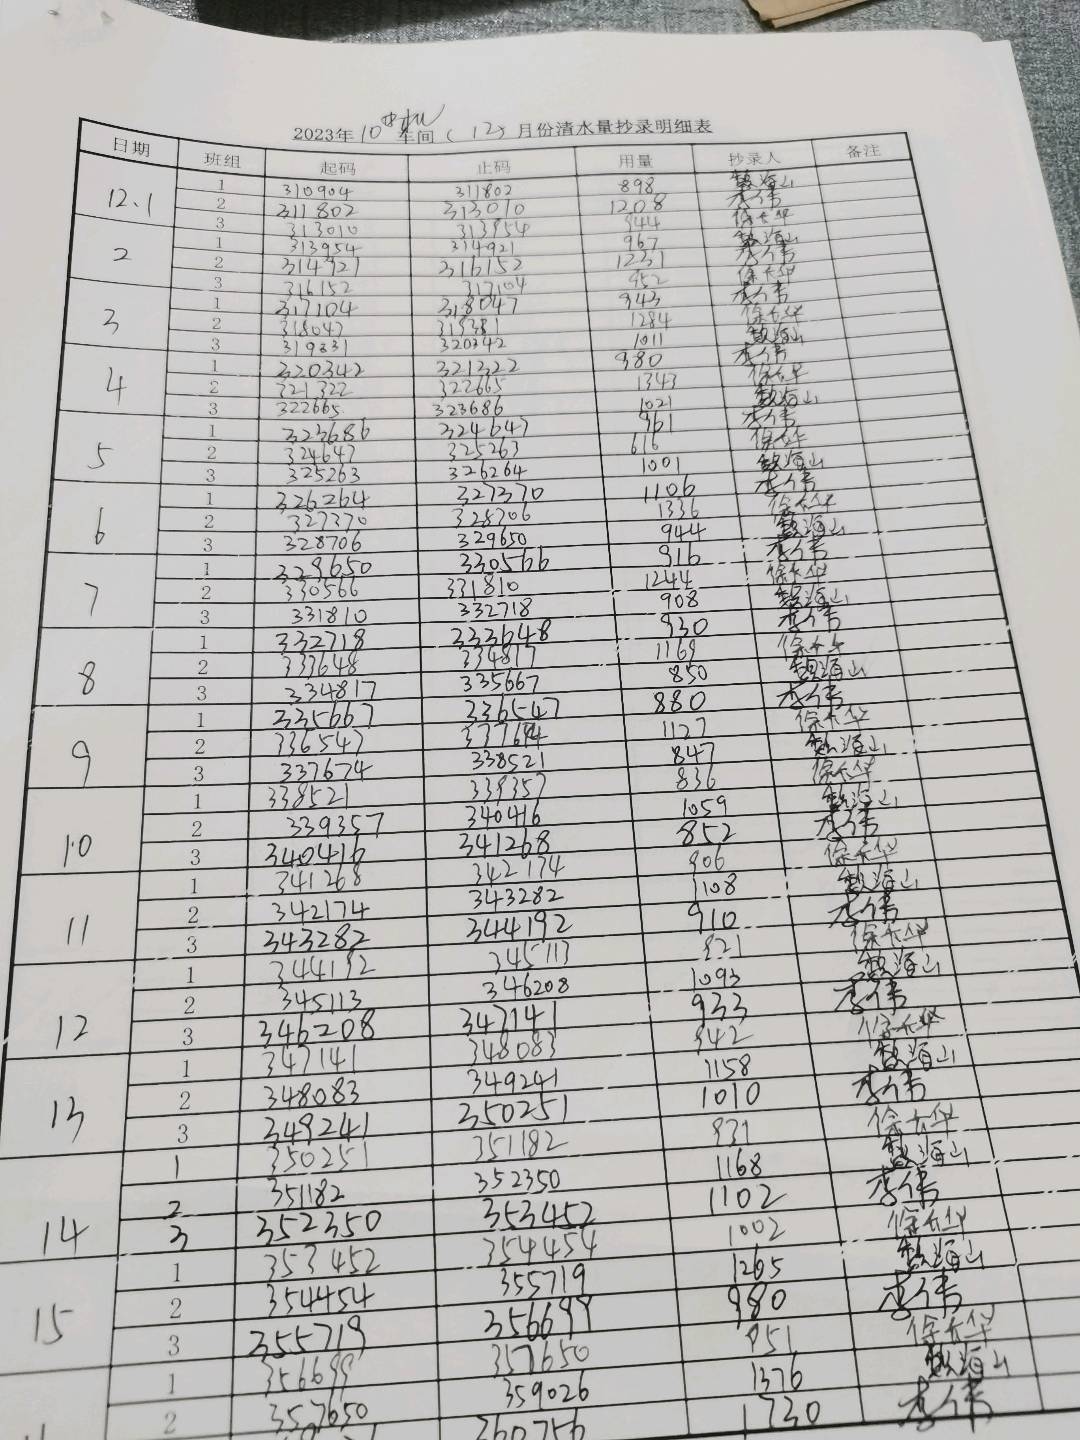 2023年 10 车间 (12) 月份清水量抄录明细表
日期 班组 起码 止码 用量 抄录人 备注
12.1 1 310904 311802 898
2 311802 313010 1208 李伟
3 313010 313954 944 徐长华
2 1 313954 314921 967
2 314921 316152 1231 李伟
3 316152 317104 952 徐长华
3 1 317104 318047 943 李伟
2 318047 319331 1284 徐长华
3 319331 320342 1011
4 1 320342 321322 980 李伟
2 321322 322665 1343 徐长华
3 322665 323686 1021
5 1 323686 324647 961 李伟
2 324647 325263 616 徐长华
3 325263 326264 1001
6 1 326264 327370 1106 李伟
2 327370 328706 1336 徐长华
3 328706 329650 944
7 1 329650 330566 916 李伟
2 330566 331810 1244 徐长华
3 331810 332718 908
8 1 332718 333648 930 李伟
2 333648 334817 1169 徐长华
3 334817 335667 850
9 1 335667 336547 880 李伟
2 336547 337674 1127 徐长华
3 337674 338521 847
10 1 338521 339357 836 徐长华
2 339357 340416 1059
3 340416 341268 852 李伟
11 1 341268 342174 906 徐长华
2 342174 343282 1108
3 343282 344192 910 李伟
12 1 344192 345113 921 徐长华
2 345113 346208 1093
3 346208 347141 933 李伟
13 1 347141 348083 942 徐长华
2 348083 349241 1158
3 349241 350251 1010 李伟
14 1 350251 351182 931 徐长华
2 351182 352350 1168
3 352350 353452 1102 李伟
15 1 353452 354454 1002 徐长华
2 354454 355719 1265
3 355719 356699 980 李伟
1 356699 357650 951 徐长华
2 357650 359026 1376
360756 1730 李伟